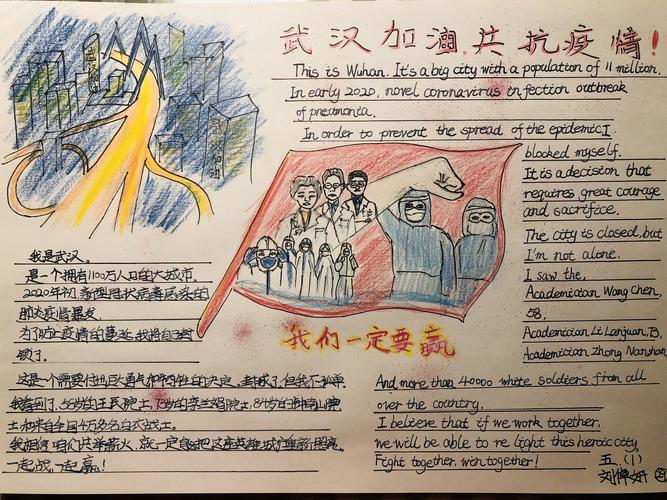 武汉加油,共抗疫情!
This is Wuhan. It's a big city with a population of 11 million.
In early 2020, novel coronavirus in fection outbreak
of pneumonia.
In order to prevent the spread of the epidemic, I
blocked myself.
It is a decision that
requires great courage
and sacrifice.
The city is closed, but
I'm not alone.
I saw the,
Academician Wang Chen,
58,
Academician Li Lanjuan, 73,
Academician Zhong Nanshan,
And more than 40000 white soldiers from all
over the country.
I believe that if we work together,
we will be able to re light this heroic city.
Fight together, win together!
我是武汉。
是一个拥有1100万人口的大城市。
2020年初,新型冠状病毒感染的
肺炎疫情暴发
为了防止疫情的蔓延,我将自己封
锁了。
这是一个需要付出巨大勇气和牺牲的决定。封城了,但我不孤单,
我看到了,58岁的王辰院士,73岁的李兰娟院士,84岁的钟南山院
士,和来自全国4万多名白衣战士。
我相信,咱们共举薪火,就一定能把这座英雄城市重新照亮。
一起战,一起赢!
我们一定要赢
武汉加油
五(1)